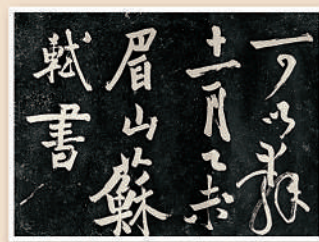 可以辭
十一月乙未
眉山蘇
軾書